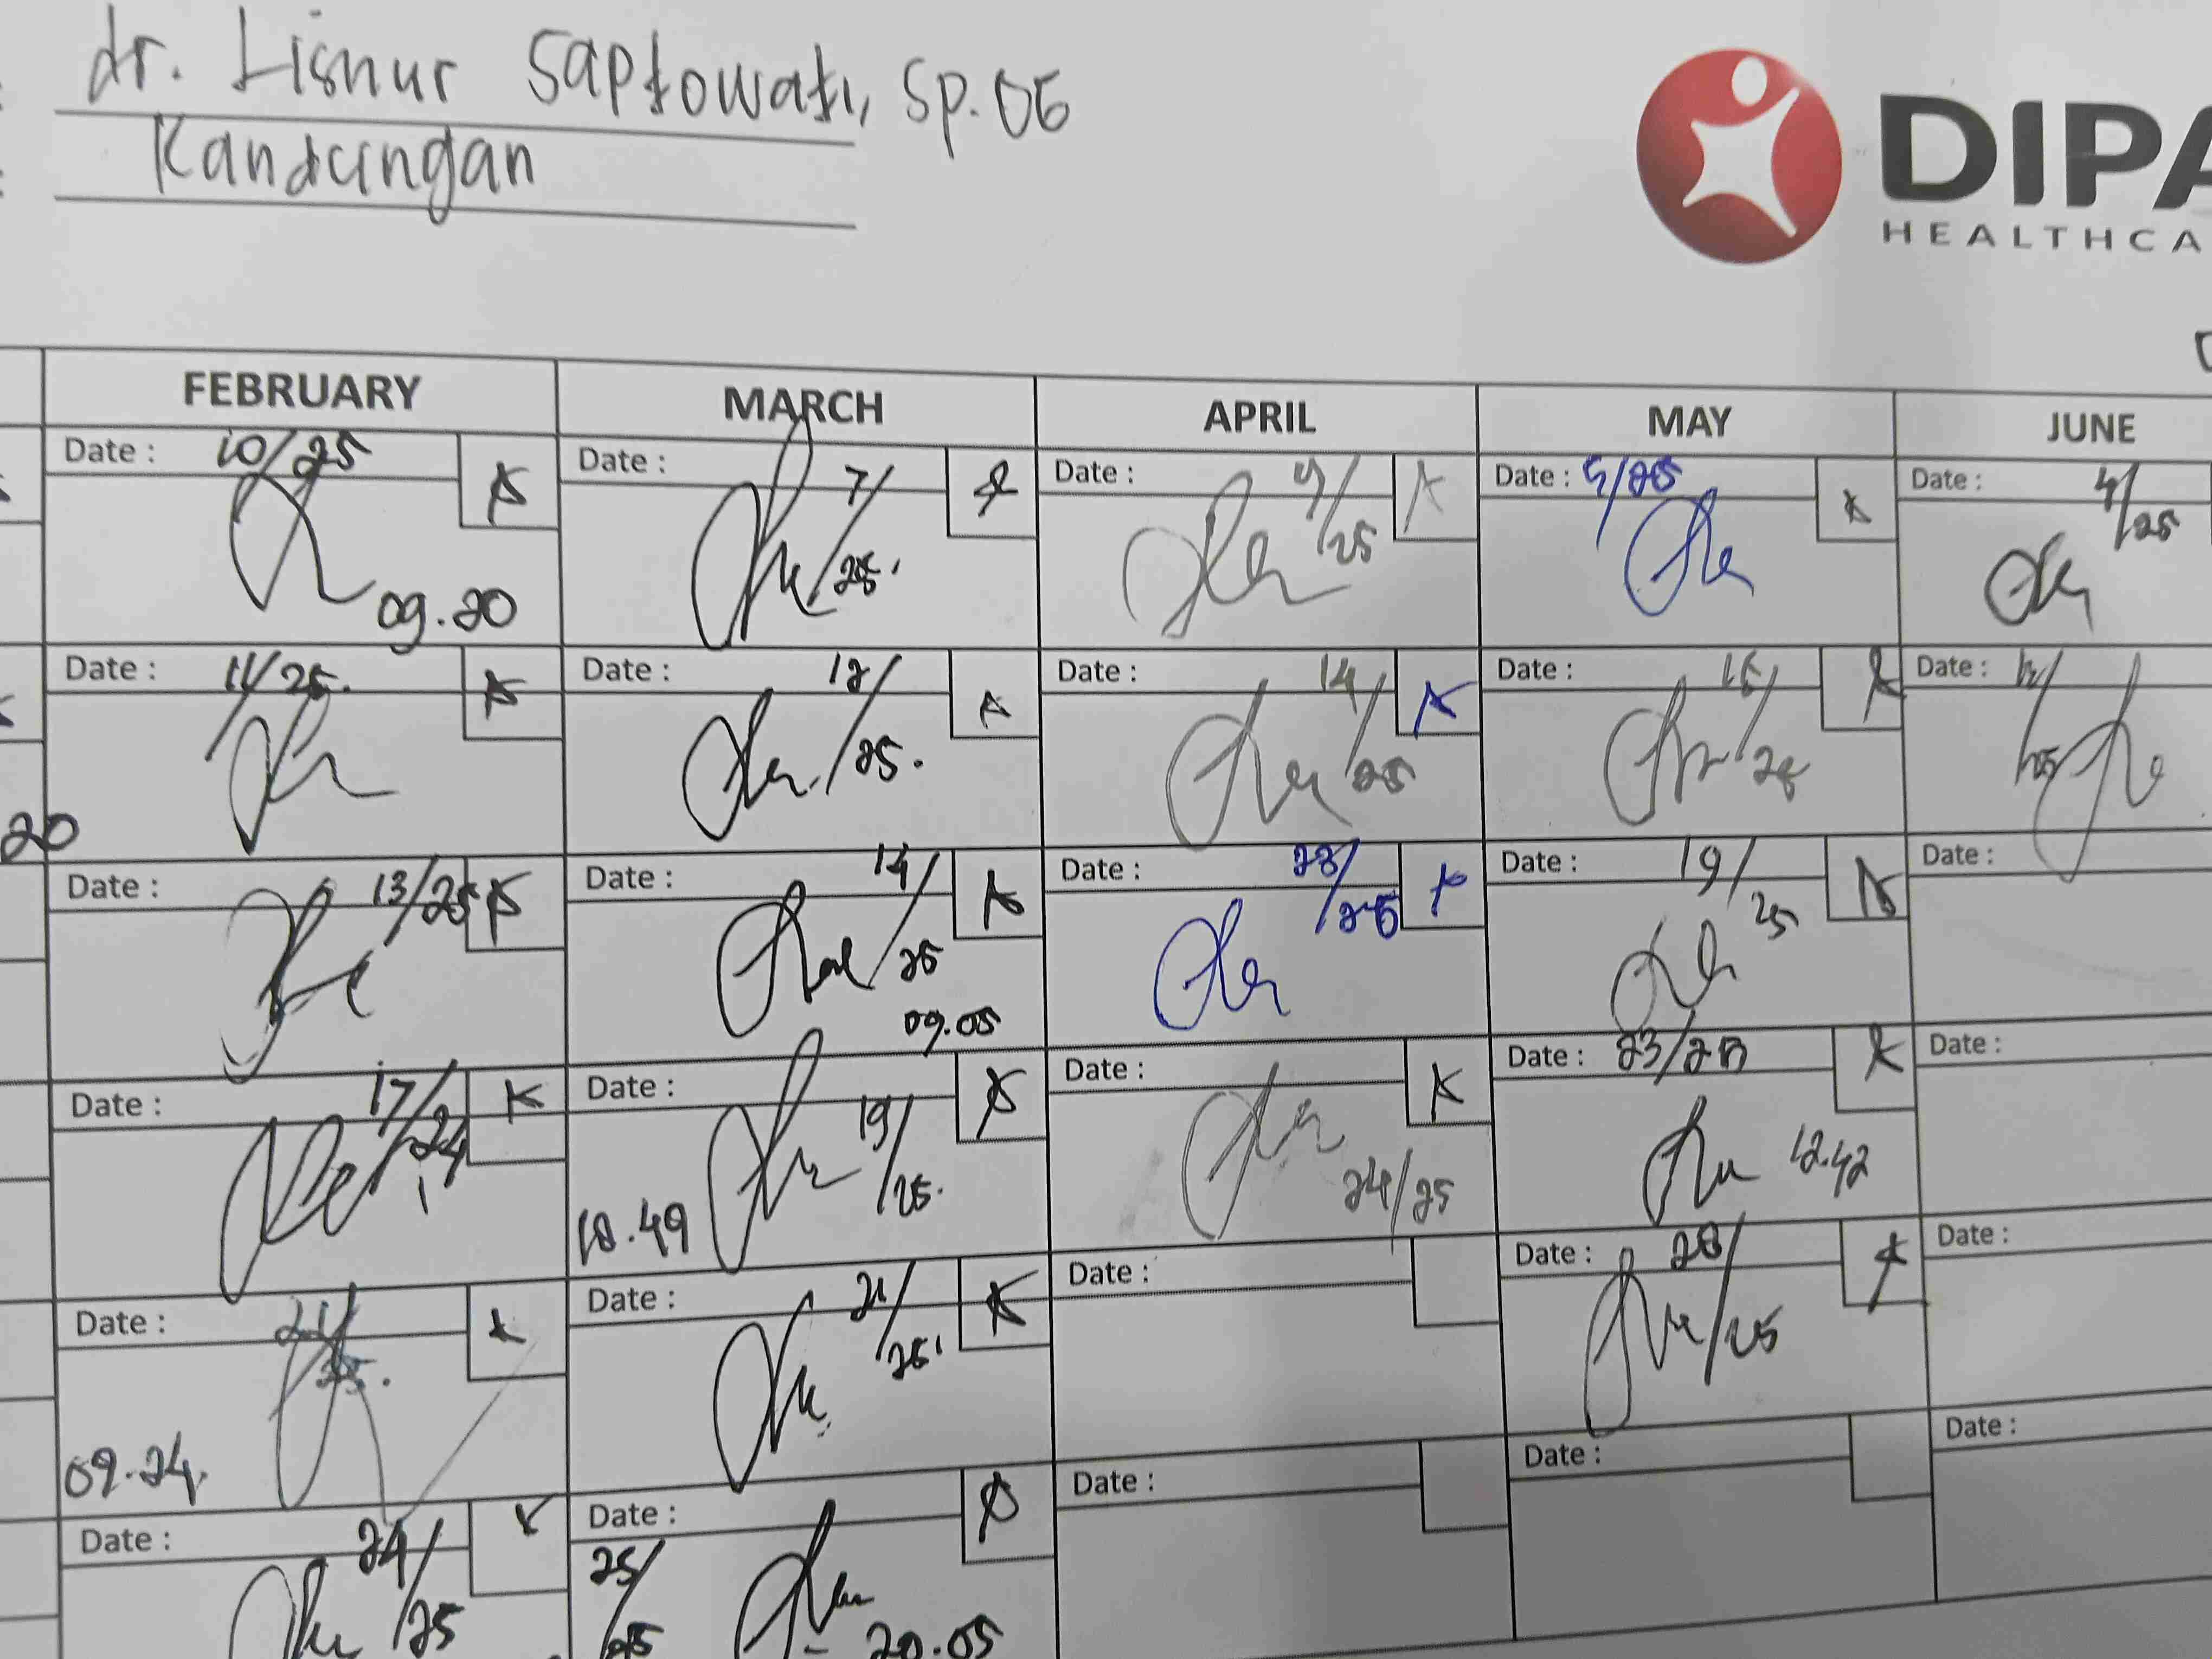 dr. Lisnur Saptowati, Sp.OG
Kandungan
DIPA
HEALTHCA
FEBRUARY MARCH APRIL MAY JUNE
Date : 10/25 Date : 7/25 Date : 9/25 Date : 5/25 Date : 4/25
09.20
Date : 11/25. Date : 12/25. Date : 14/25 Date : Date :
20
Date : 13/25 Date : 14/25 Date : 23/25 Date : 19/25 Date :
09.05
Date : 17/24 Date : 19/25. Date : 24/25 Date : 23/25 Date :
18.49 12.42
Date : 21/25. Date : 21/25 Date : Date : 28/25 Date :
09.24.
Date : 24/25 Date : 25/25 Date : Date : Date :
20.05